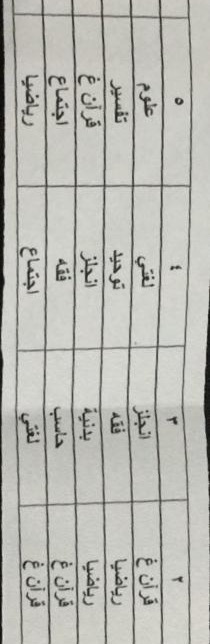 ٢ ٣ ٤ ٥
قرآن غ انجلز لغتي علوم
رياضيا فقه توحيد تفسير
رياضيا بدنية انجلز قرآن غ
قرآن غ حاسب فقه اجتماع
قرآن غ لغتي اجتماع رياضيا